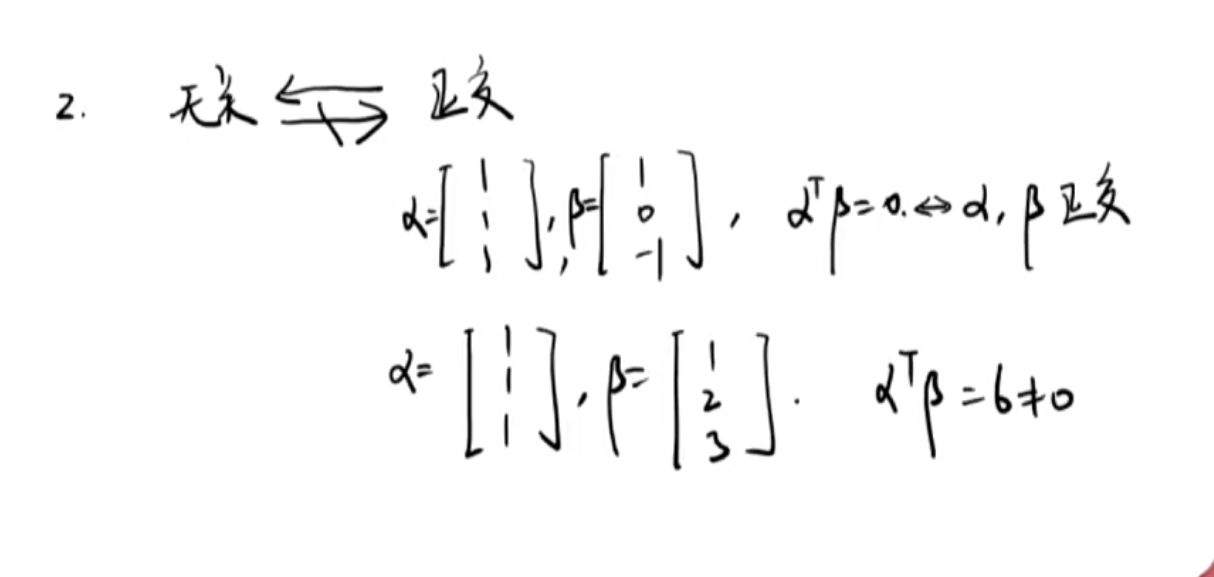 2. 无关 ⇍⇒ 正交
α=[1 1 1], β=[1 0 -1], αᵀβ=0. ↔ α, β 正交
α=[1 1 1], β=[1 2 3]. αᵀβ=6≠0